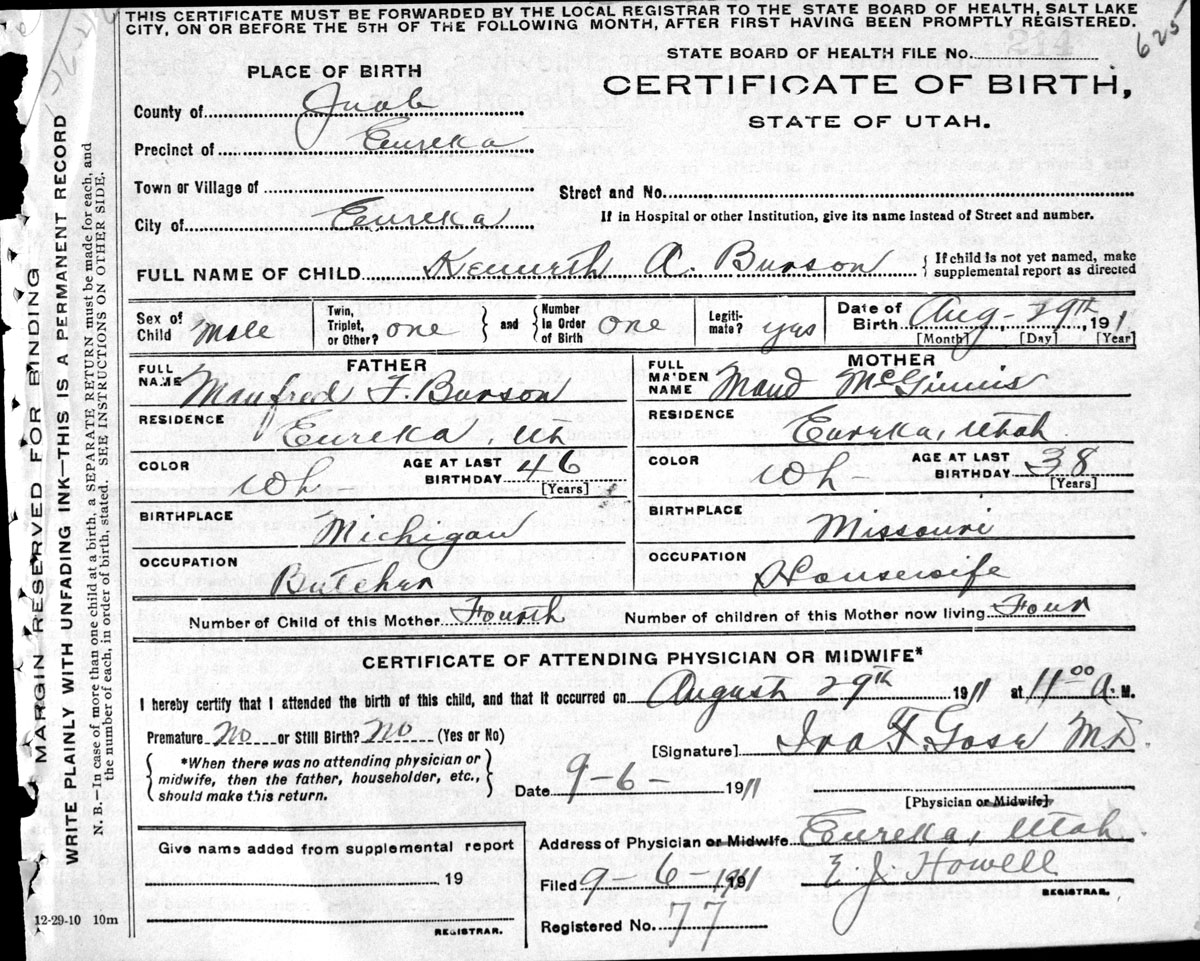 THIS CERTIFICATE MUST BE FORWARDED BY THE LOCAL REGISTRAR TO THE STATE BOARD OF HEALTH, SALT LAKE
CITY, ON OR BEFORE THE 5TH OF THE FOLLOWING MONTH, AFTER FIRST HAVING BEEN PROMPTLY REGISTERED.
625
STATE BOARD OF HEALTH FILE No.
CERTIFICATE OF BIRTH,
STATE OF UTAH.
PLACE OF BIRTH
County of Juab
Precinct of Eureka
Town or Village of
Street and No.
City of Eureka
If in Hospital or other Institution, give its name instead of Street and number.
FULL NAME OF CHILD Kenneth A. Burson
{ If child is not yet named, make
supplemental report as directed
Sex of Child Male
Twin, Triplet, or Other? one
} and {
Number in Order of Birth one
Legiti-mate? yes
Date of Birth Aug - 29th, 1911
[Month] [Day] [Year]
FATHER
FULL NAME Manfred F. Burson
RESIDENCE Eureka, Ut
COLOR Wh -
AGE AT LAST BIRTHDAY 46
[Years]
BIRTHPLACE Michigan
OCCUPATION Butcher
MOTHER
FULL MAIDEN NAME Maud McGinnis
RESIDENCE Eureka, Utah
COLOR Wh -
AGE AT LAST BIRTHDAY 38
[Years]
BIRTHPLACE Missouri
OCCUPATION Housewife
Number of Child of this Mother Fourth Number of children of this Mother now living Four
CERTIFICATE OF ATTENDING PHYSICIAN OR MIDWIFE*
I hereby certify that I attended the birth of this child, and that it occurred on August 29th 1911 at 11 00 A. M.
Premature No or Still Birth? No (Yes or No)
{ *When there was no attending physician or
midwife, then the father, householder, etc.,
should make this return. }
[Signature] M.D.
Date 9-6- 1911
[Physician or Midwife]
Address of Physician or Midwife Eureka, Utah
Filed 9-6-1911 191 E J. Howell
REGISTRAR.
Registered No. 77
Give name added from supplemental report
19
REGISTRAR.
12-29-10 10m
MARGIN RESERVED FOR BINDING
WRITE PLAINLY WITH UNFADING INK—THIS IS A PERMANENT RECORD
N. B.—In case of more than one child at a birth, a SEPARATE RETURN must be made for each, and
the number of each, in order of birth, stated. SEE INSTRUCTIONS ON OTHER SIDE.